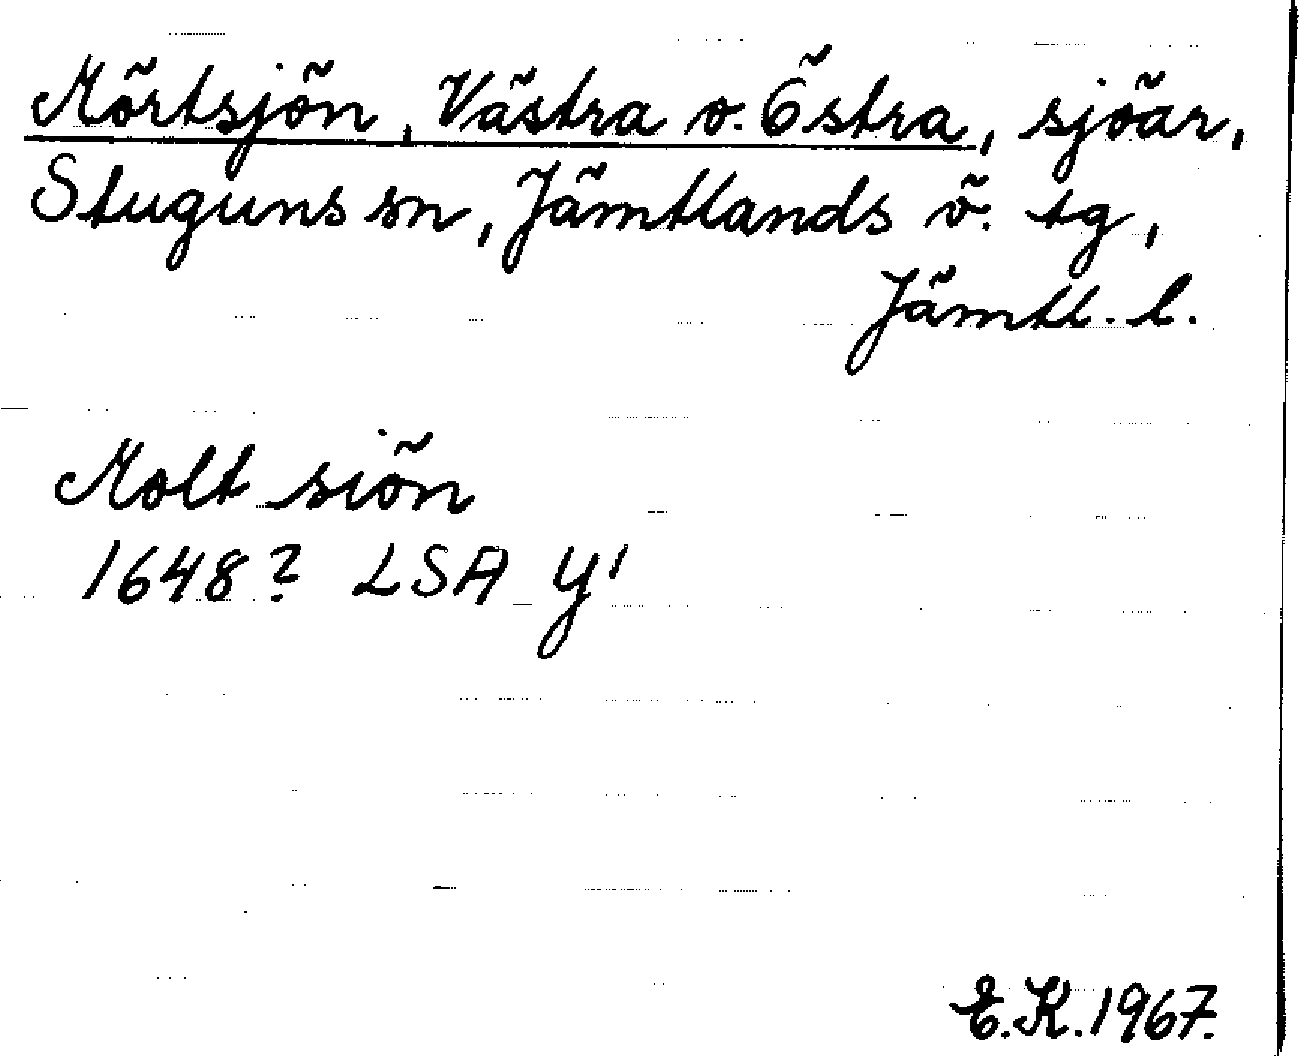 Mörtsjön, Västra o. Östra, sjöar,
Stuguns sn, Jämtlands ö. tg,
Jämtl. l.
Molt siön
1648? LSA Y1
E.K. 1967.